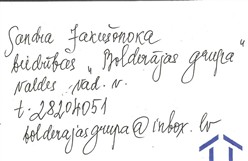 Sandra Jakušonoka
biedrības "Bolderājas grupa"
valdes v.ad.v.
t. 28204051
bolderajasgrupa@inbox.lv